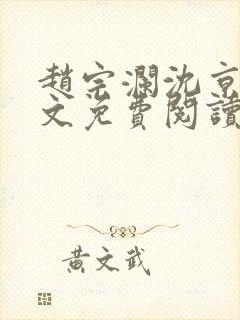 趙宗瀾沈京
文免費閱讀
黃文武